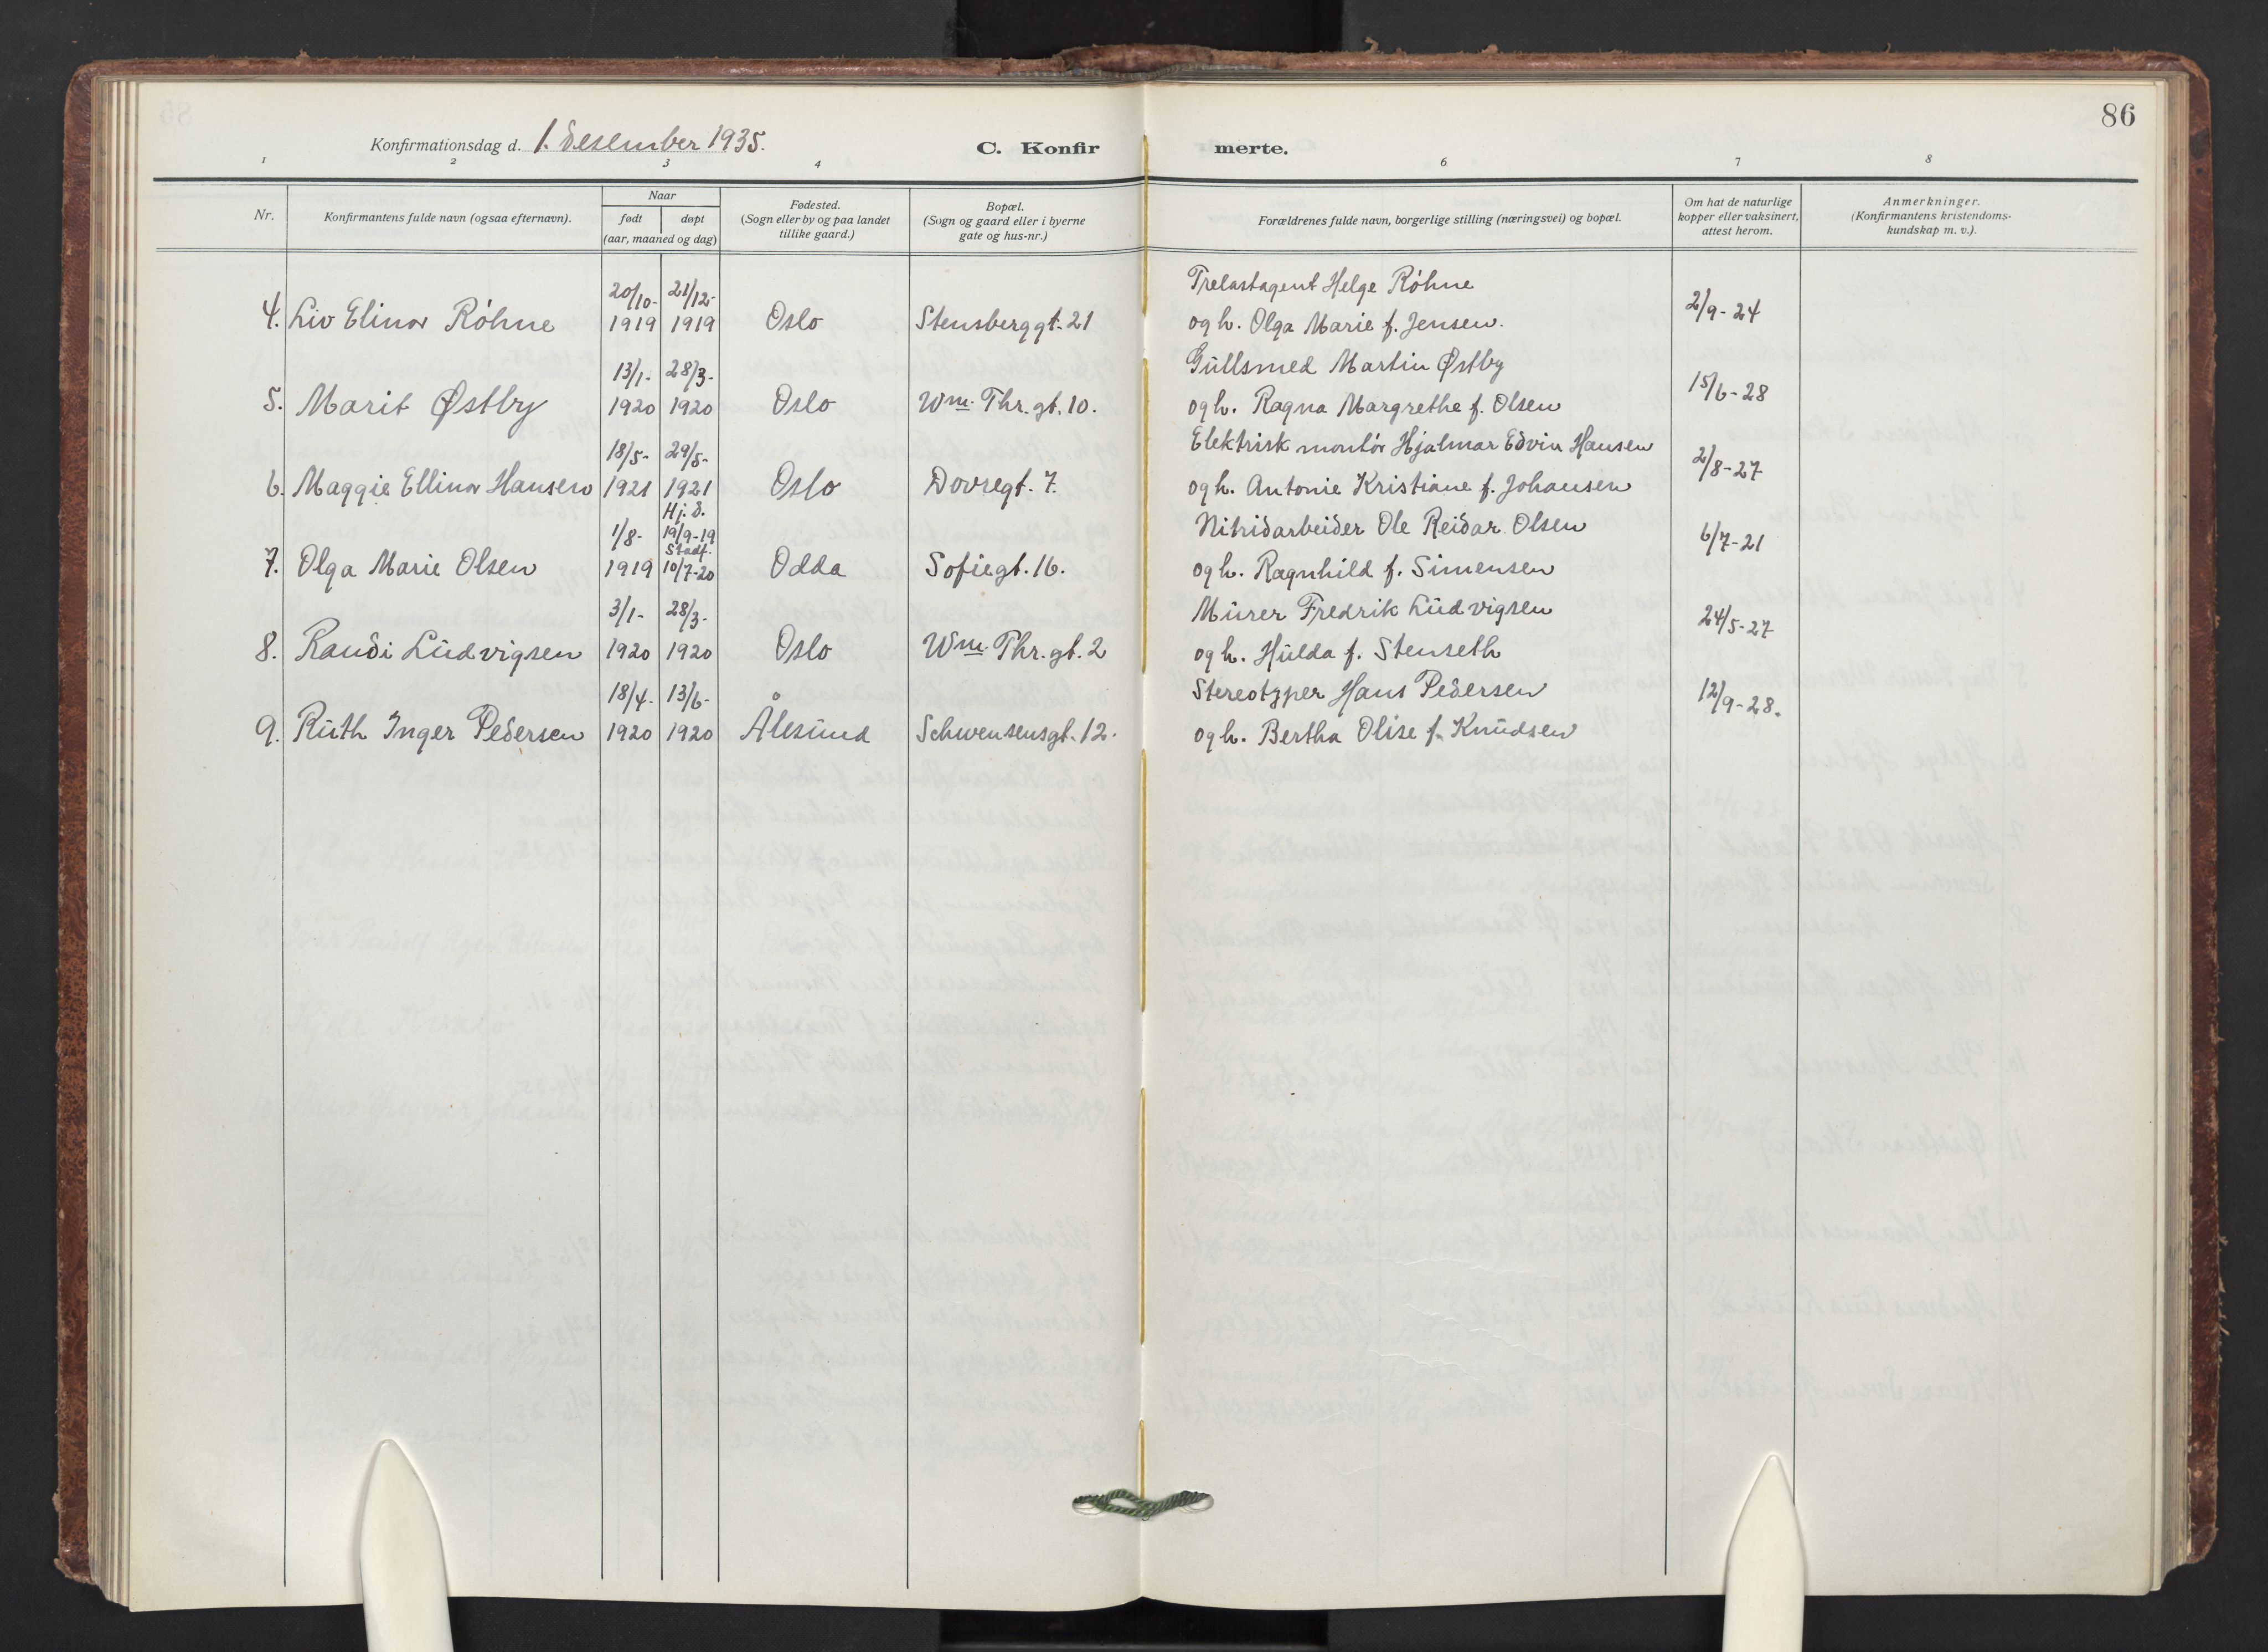 86
Konfirmationsdag d. 1. desember 1935.
C. Konfirmerte.
1 2 3 4 6 7 8
Nr.
Konfirmantens fulde navn (ogsaa efternavn).
Naar
født døpt
(aar, maaned og dag)
Fødested.
(Sogn eller by og paa landet
tillike gaard.)
Bopæl.
(Sogn og gaard eller i byerne
gate og hus-nr.)
Forældrenes fulde navn, borgerlige stilling (næringsvei) og bopæl.
Om hat de naturlige
kopper eller vaksinert,
attest herom.
Anmerkninger.
(Konfirmantens kristendoms-
kundskap m. v.).
20/10- 21/12- Trelastagent Helge Röhne
4. Liv Elinor Röhne 1919 1919 Oslo Stensberggt. 21 og h. Olga Marie f. Jensen. 2/9-24
13/1- 28/3- Gullsmed Martin Østby
5. Marit Østby 1920 1920 Oslo Wm. Thr. gt. 10. og h. Ragna Margrethe f. Olsen 15/6-28
18/5- 29/5- Elektrisk montör Hjalmar Edvin Hansen
6. Maggie Ellinor Hansen 1921 1921 Oslo Dovregt. 7. og h. Antonie Kristiane f. Johansen 2/8-27
Hj. d.
1/8- 19/9-19 Nitridarbeider Ole Reidar Olsen
Stadf.
7. Olga Marie Olsen 1919 10/7-20 Odda Sofiegt. 16. og h. Ragnhild f. Simensen 6/7-21
3/1- 28/3- Murer Fredrik Ludvigsen
8. Randi Ludvigsen 1920 1920 Oslo Wm. Thr. gt. 2 og h. Hulda f. Stenseth 24/5-27
18/4- 13/6- Stereotyper Hans Pedersen
9. Ruth Inger Pedersen 1920 1920 Ålesund Schwensensgt. 12. og h. Bertha Olise f. Knudsen 12/9-28.